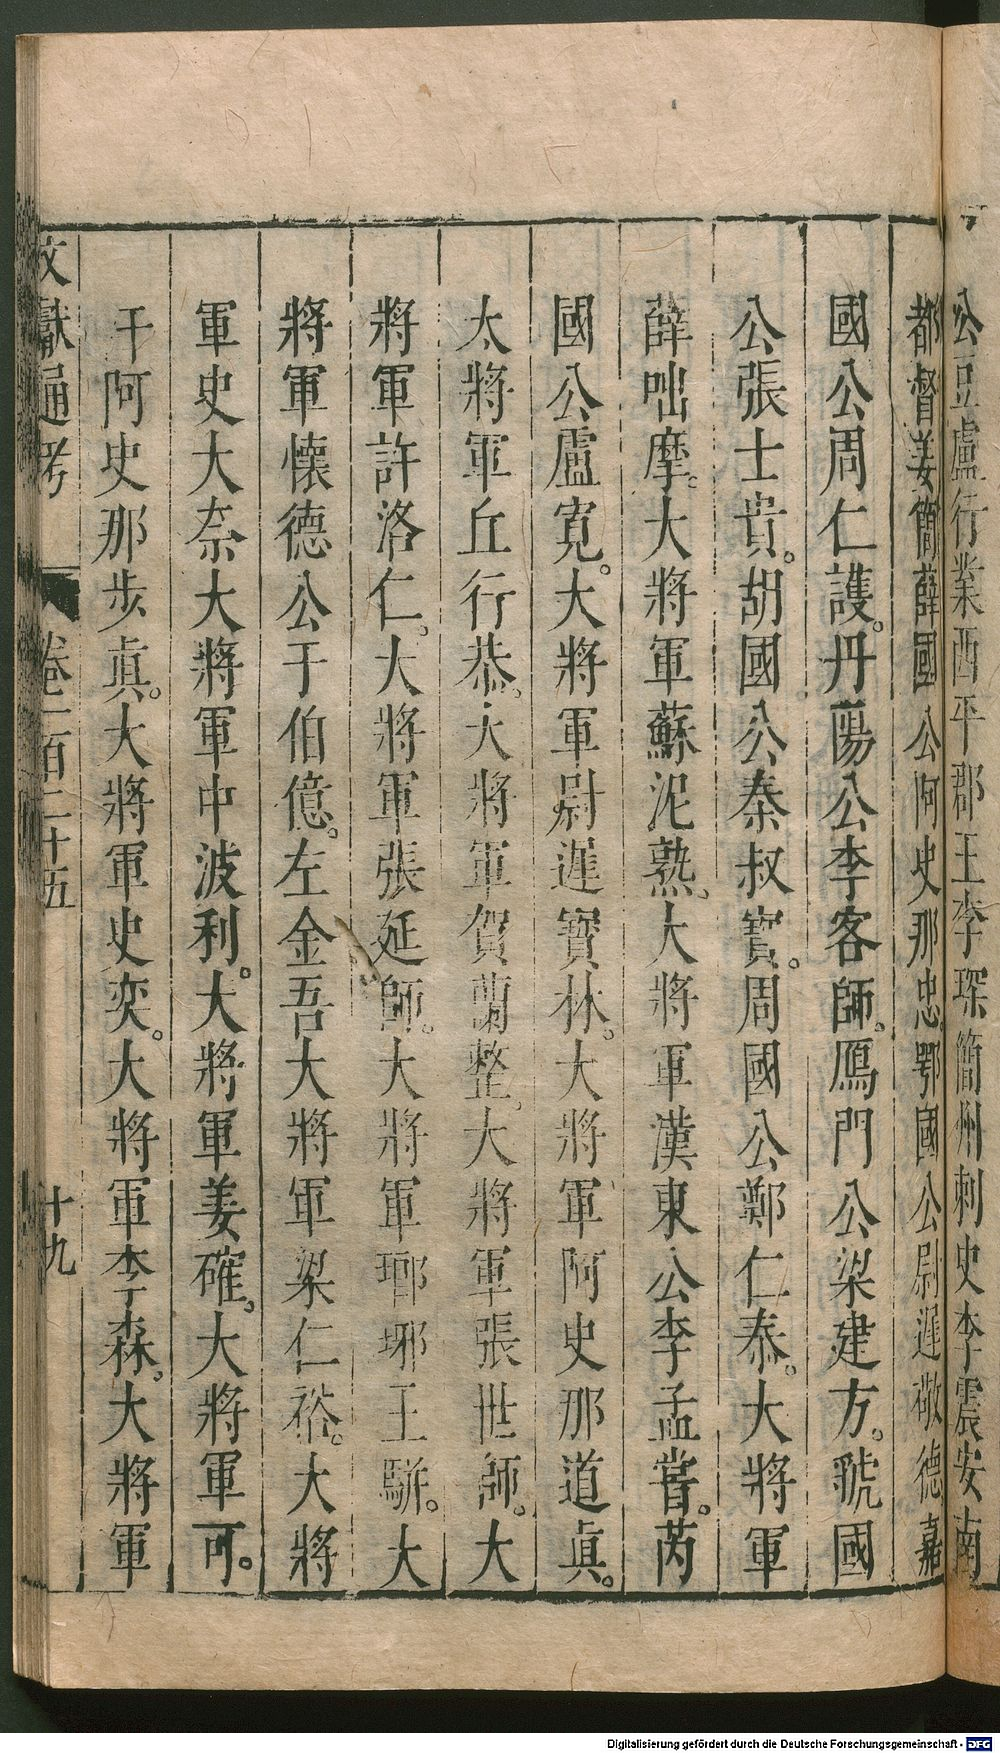 公豆盧行業西平郡王李琛簡州刺史李震安南
都督姜簡薛國公阿史那忠鄂國公尉遲敬德嘉
國公周仁護。丹陽公李客師。鴈門公梁建方。虢國
公張士貴。胡國公秦叔寳。周國公鄭仁泰。大將軍
薛咄摩。大將軍蘇泥熟。大將軍漢東公李孟嘗。芮
國公盧寬。大將軍尉遲寳林。大將軍阿史那道眞。
太將軍丘行恭。大將軍賀蘭整。大將軍張世師。大
將軍許洛仁。大將軍張延師。大將軍瑯琊王駢。大
將軍懷德公于伯億。左金吾大將軍梁仁裕。大將
軍史大奈大將軍中波利。大將軍姜確。大將軍可。
干阿史那步眞。大將軍史奕。大將軍李森。大將軍
文獻通考 卷一百二十五 十九
Digitalisierung gefördert durch die Deutsche Forschungsgemeinschaft - DFG